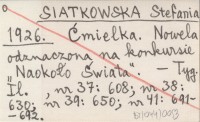 SIATKOWSKA Stefania
1926. Ćmielka. Nowela
odznaczona na konkursie
"Naokoło Świata". — Tyg.
Il., nr 37: 608; nr 38:
630; nr 39: 650; nr 41: 691-
-692.